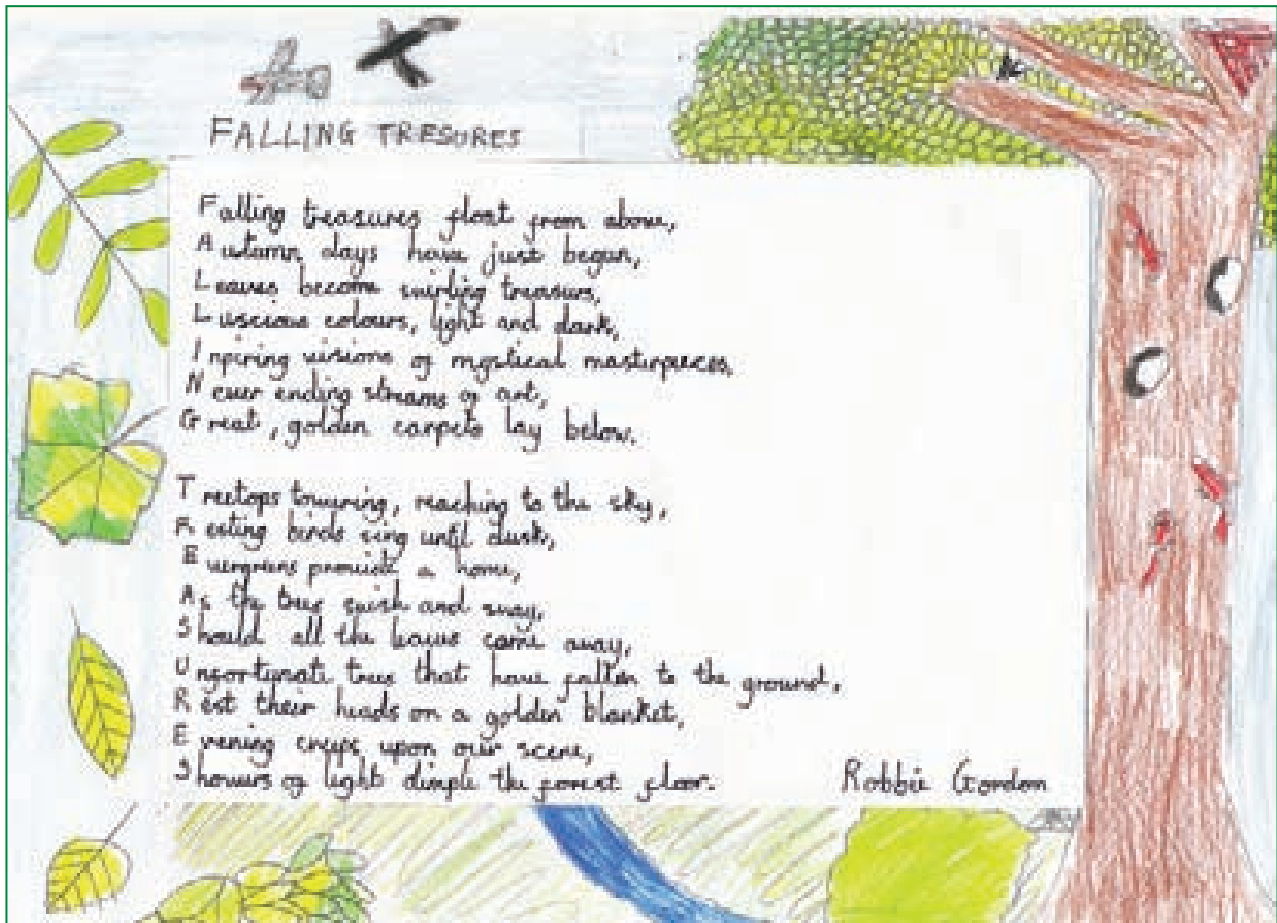 FALLING TRESURES
Falling treasures float from above,
Autumn days have just began,
Leaves become swirling treasurs,
Luscious colours, light and dark,
Inpiring visions of mystical masterpieces,
Never ending streams of art,
Great, golden carpets lay below.
Treetops towering, reaching to the sky,
Resting birds sing until dusk,
Evergreens provide a home,
As the trees swish and sway,
Should all the leaves come away,
Unfortunate trees that have fallen to the ground,
Rest their heads on a golden blanket,
Evening creeps upon our scene,
Showers of light dimple the forest floor.
Robbie Gordon